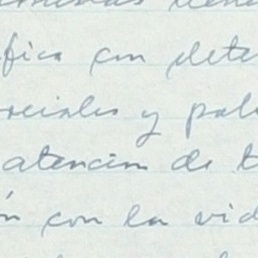 fica con dete
ociales y pol
atención de t
ón con la vid